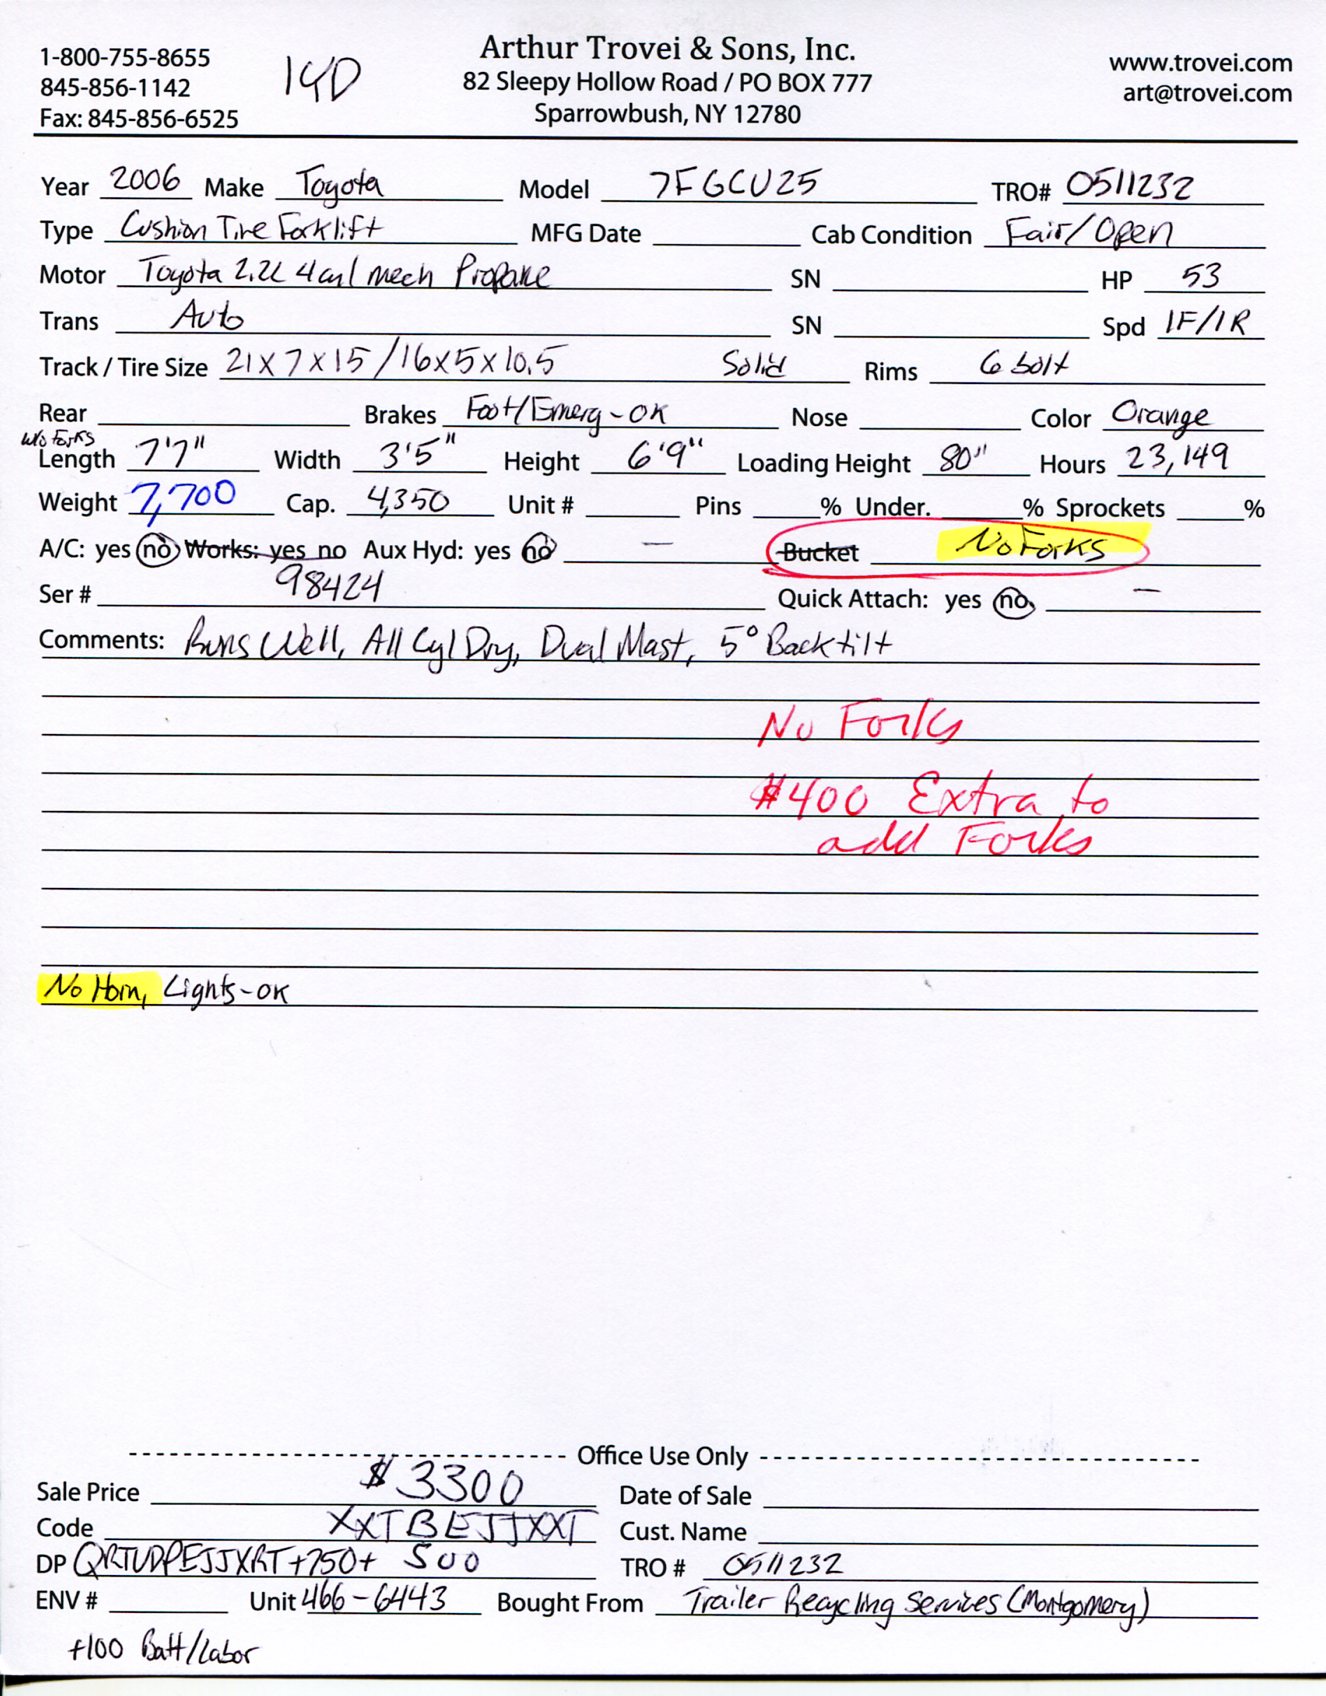 1-800-755-8655
845-856-1142
Fax: 845-856-6525
14D
Arthur Trovei & Sons, Inc.
82 Sleepy Hollow Road / PO BOX 777
Sparrowbush, NY 12780
www.trovei.com
art@trovei.com
Year 2006 Make Toyota Model 7FGCU25 TRO# 0511232
Type Cushion Tire Forklift MFG Date Cab Condition Fair/Open
Motor Toyota 2.2L 4cyl mech Propane SN HP 53
Trans Auto SN Spd 1F/1R
Track / Tire Size 21x7x15 /16x5x10.5 Solid Rims 6 bolt
Rear Brakes Foot/Emerg-OK Nose Color Orange
w/o Forks
Length 7'7" Width 3'5" Height 6'9" Loading Height 80" Hours 23,149
Weight 7,700 Cap. 4,350 Unit # Pins % Under. % Sprockets %
A/C: yes no Works: yes no Aux Hyd: yes no — Bucket No Forks
Ser # 98424 Quick Attach: yes no —
Comments: Runs Well, All Cyl Dry, Dual Mast, 5° Backtilt
No Forks
$400 Extra to
add Forks
No Horn, Lights-OK
Office Use Only
Sale Price $3300 Date of Sale
Code XXTBEJJXXT Cust. Name
DP QRTUDPEJJXRT+750+ 500 TRO # 0511232
ENV # Unit 466-6443 Bought From Trailer Recycling Services (Montgomery)
+100 Batt/Labor